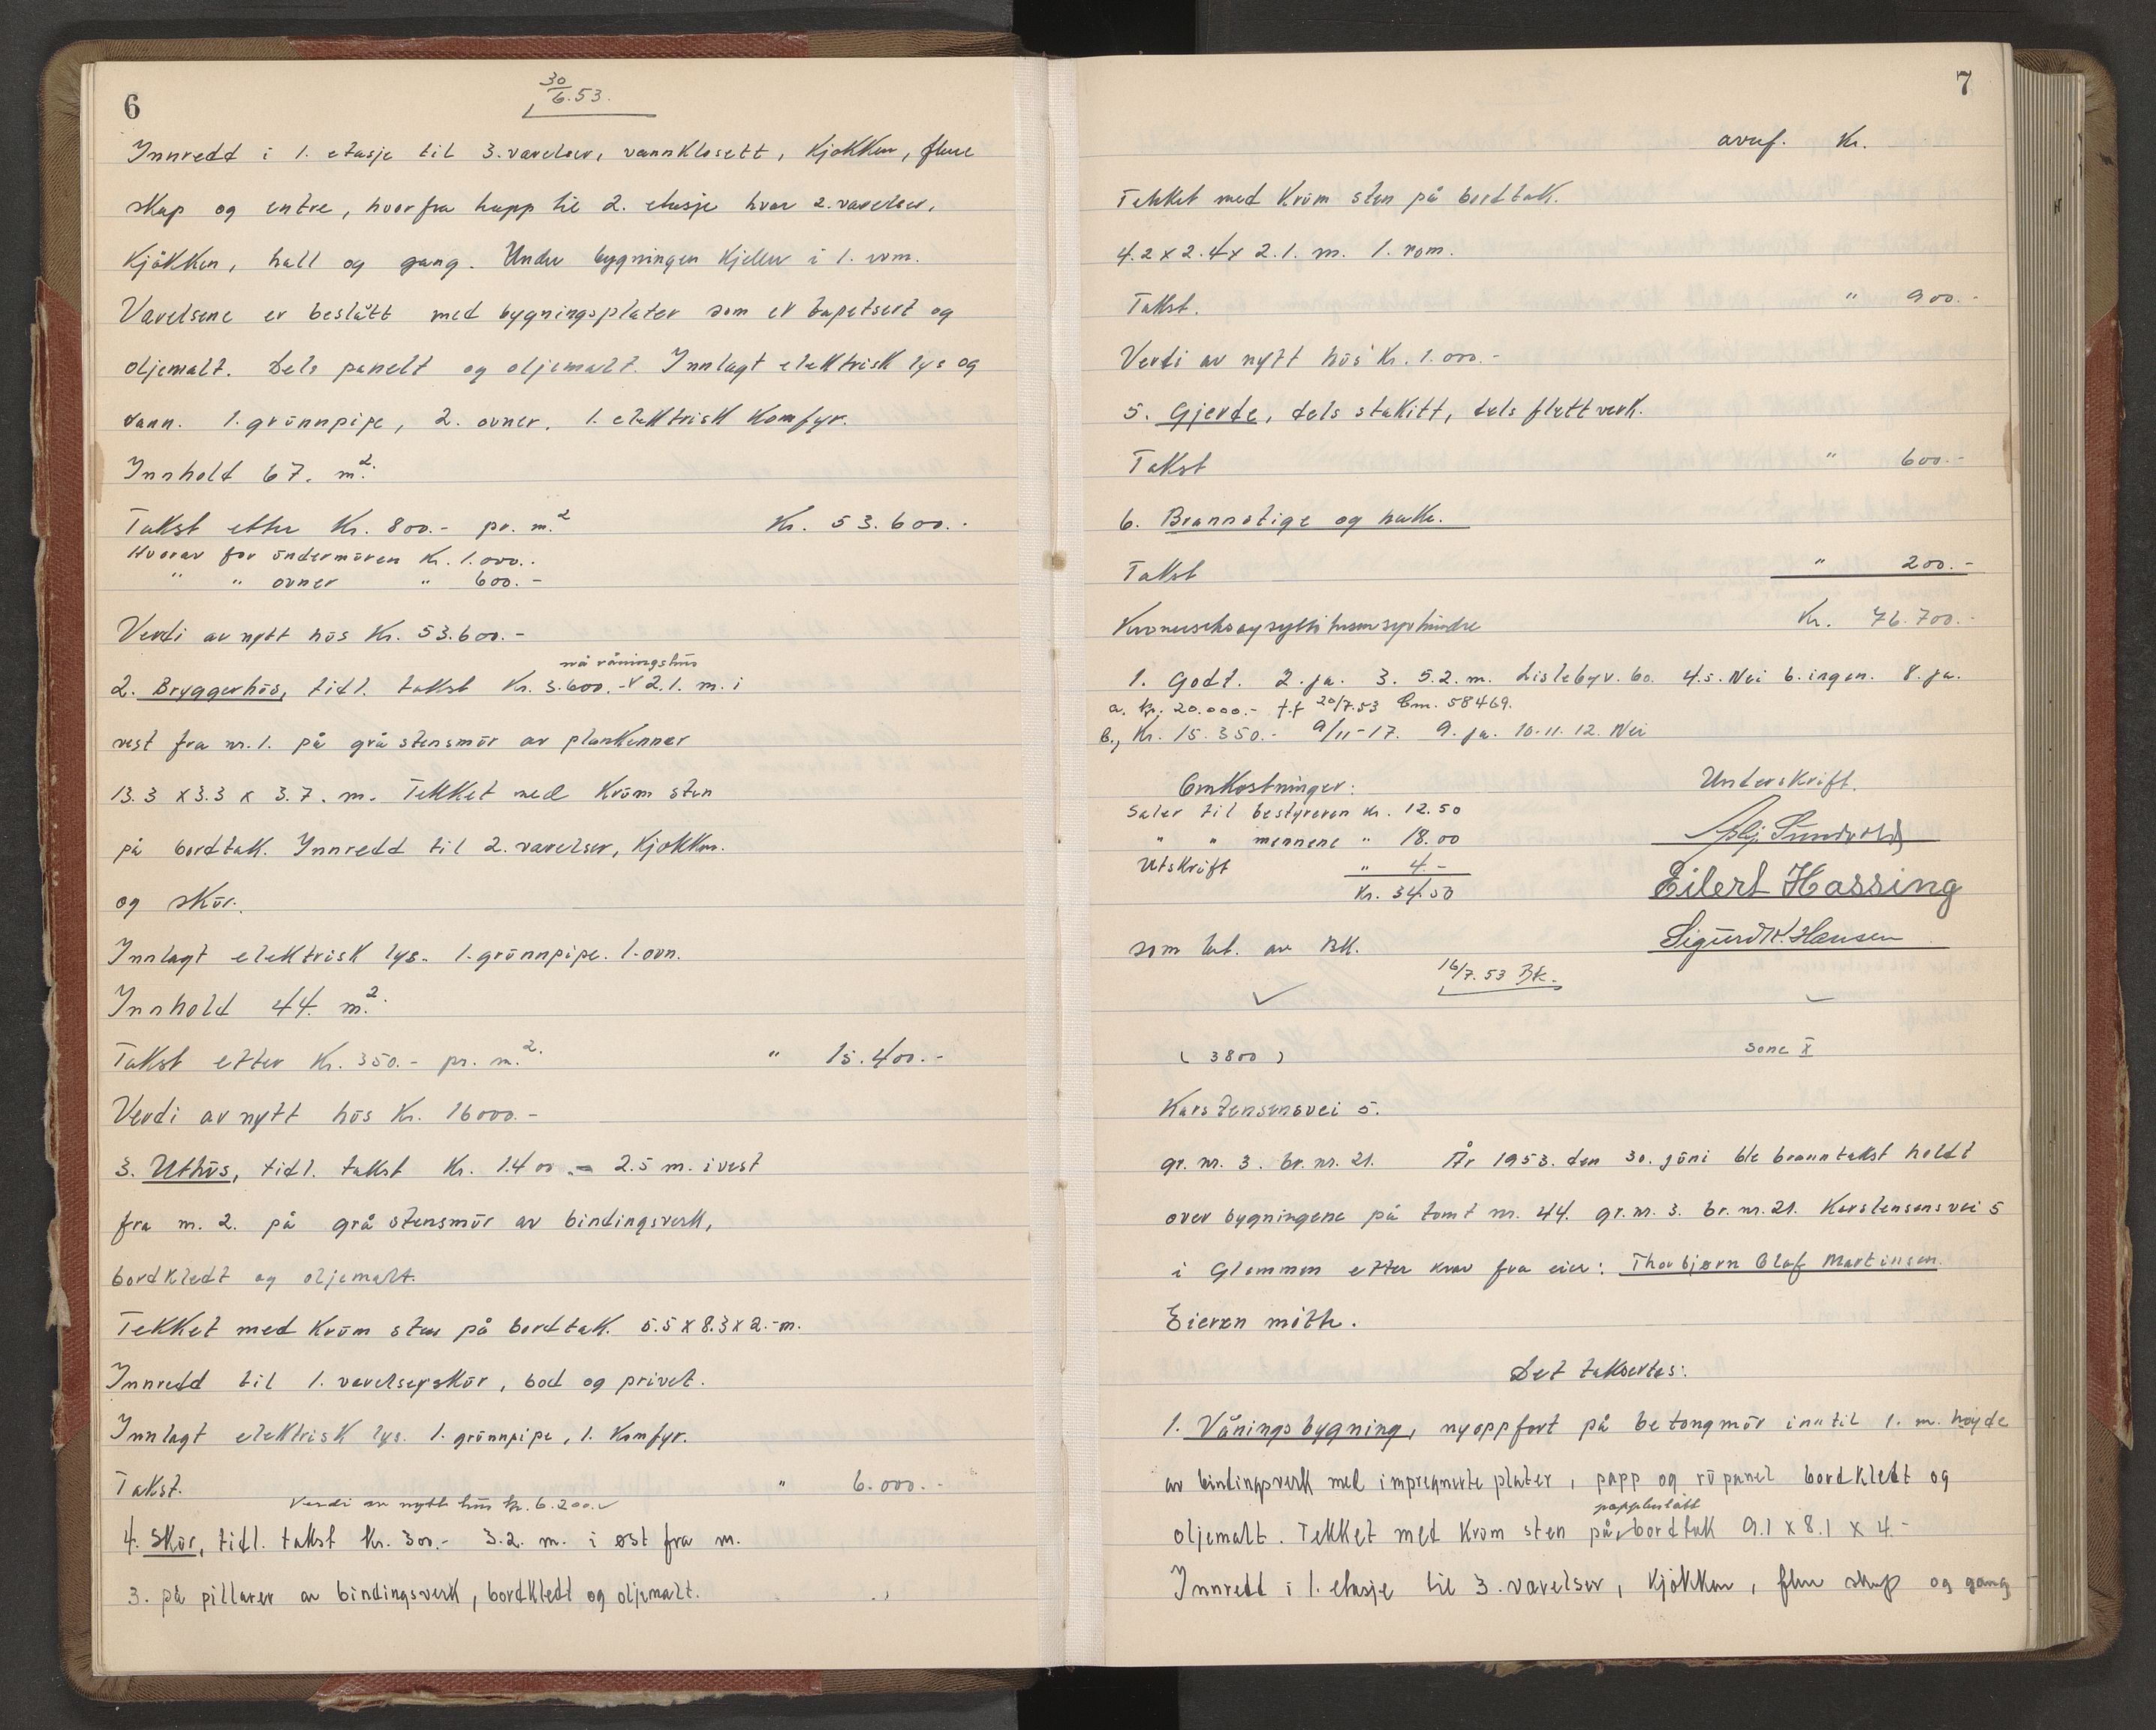 6
30/6.53.
Innredd i 1. etasje til 3. værelser, vannklosett, kjøkken, flere
skap og entre, hvorfra trapp til 2. etasje hvor 2. værelser,
kjøkken, hall og gang. Under bygningen kjeller i 1. rom.
Værelsene er beslått med bygningsplater som er tapetsert og
oljemalt. Dels panelt og oljemalt. Innlagt elektrisk lys og
vann. 1. grunnpipe, 2. ovner, 1. elektrisk komfyr.
Innhold 67. m².
Takst etter Kr. 800.- pr. m.² Kr. 53.600.-
Hvorav for undermuren Kr. 1.000.-
" " ovner " 600.-
Verdi av nytt hus Kr. 53.600.-
nå våningshus
2. Bryggerhus, tidl. takst Kr. 3.600.- 2.1. m. i
vest fra nr. 1. på gråstensmur av plankenner
13.3 x 3.3 x 3.7. m. Tekket med Krum sten
på bordtak. Innredd til 2. værelser, kjøkken.
og skur.
Innlagt elektrisk lys. 1. grunnpipe. 1. ovn.
Innhold 44. m².
Takst etter Kr. 350.- pr. m.² " 15.400.-
Verdi av nytt hus Kr. 16000.-
3. Uthus, tidl. takst Kr. 1.400.- 2.5 m. i vest
fra nr. 2. på grå stensmur av bindingsverk,
bordkledt og oljemalt.
Tekket med Krum sten på bordtak. 5.5 x 8.3 x 2.- m.
Innredd til 1. værelse, skur, bod og privet.
Innlagt elektrisk lys. 1. grunnpipe, 1. Komfyr.
Takst. " 6.000.-
Verdi av nytt hus kr. 6.200.-
4. Skur, tidl. takst Kr. 300.- 3.2. m. i øst fra nr.
3. på pillarer av bindingsverk, bordkledt og oljemalt.
7
overf. Kr.
Tekket med Krum sten på bordtak.
4.2 x 2.4 x 2.1. m. 1. rom.
Takst. " 900.-
Verdi av nytt hus Kr. 1.000.-
5. Gjerde, dels stakitt, dels flettverk.
Takst " 600.-
6. Brannstige og hake.
Takst " 200.-
Kronersekstusynhundre Kr. 76.700.-
1. Godt. 2. ja. 3. 5.2. m. Lislebyv. 60. 4.5. Nei 6. ingen. 8. ja.
a. kr. 20.000.- f.f 20/7.53 Bm. 58469.
b., Kr. 15.350.- 9/11-17. 9. ja. 10-11. 12. Nei
Omkostninger: Underskrift.
Salær til bestyreren Kr. 12.50
" " mennene " 18.00
Utskrift " 4.-
Kr. 34.50
Eilert Hassing
som bet. av BK. Sigurd H. Hansen
16/7.53 BK.
( 3800 ) sone X
Karstensensvei 5.
gr. nr. 3. br. nr. 21. År 1953. den 30. juni ble branntakst holdt
over bygningene på tomt nr. 44. gr. nr. 3. br. nr. 21. Karstensensvei 5
i Glemmen etter krav fra eier: Thorbjørn Olaf Martinsen.
Eieren møtte.
Det takseres:
1. Våningsbygning, nyoppført på betongmur inntil 1. m. høyde
av bindingsverk med impregnerte plater, papp og rupanel bordkledt og
pappbeslått
oljemalt. Tekket med Krum sten på bordtak 9.1 x 8.1 x 4.-
Innredd i 1. etasje til 3. værelser, kjøkken, flere skap og gang